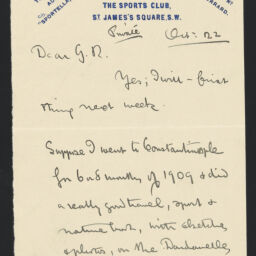 "SPORTELLA
THE SPORTS CLUB,
ST. JAMES'S SQUARE, S.W.
GERRARD.
Private Oct: 22
Dear G. R.
Yes; I will - first
thing next week.
Suppose I went to Constantinople
for 6 or 8 months of 1909 & did
a really good travel, sport &
nature book, with sketches
& photos, on the Dardanelles